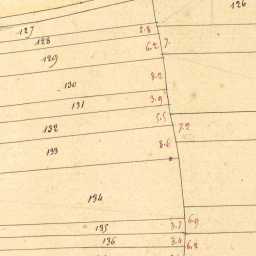 126
127
128 2.8
129 6.2 7.
130 8.2
131 3.9
132 5.5 7.2
133 8.6
134
135 3.7 6.9
136 3.4 6.2